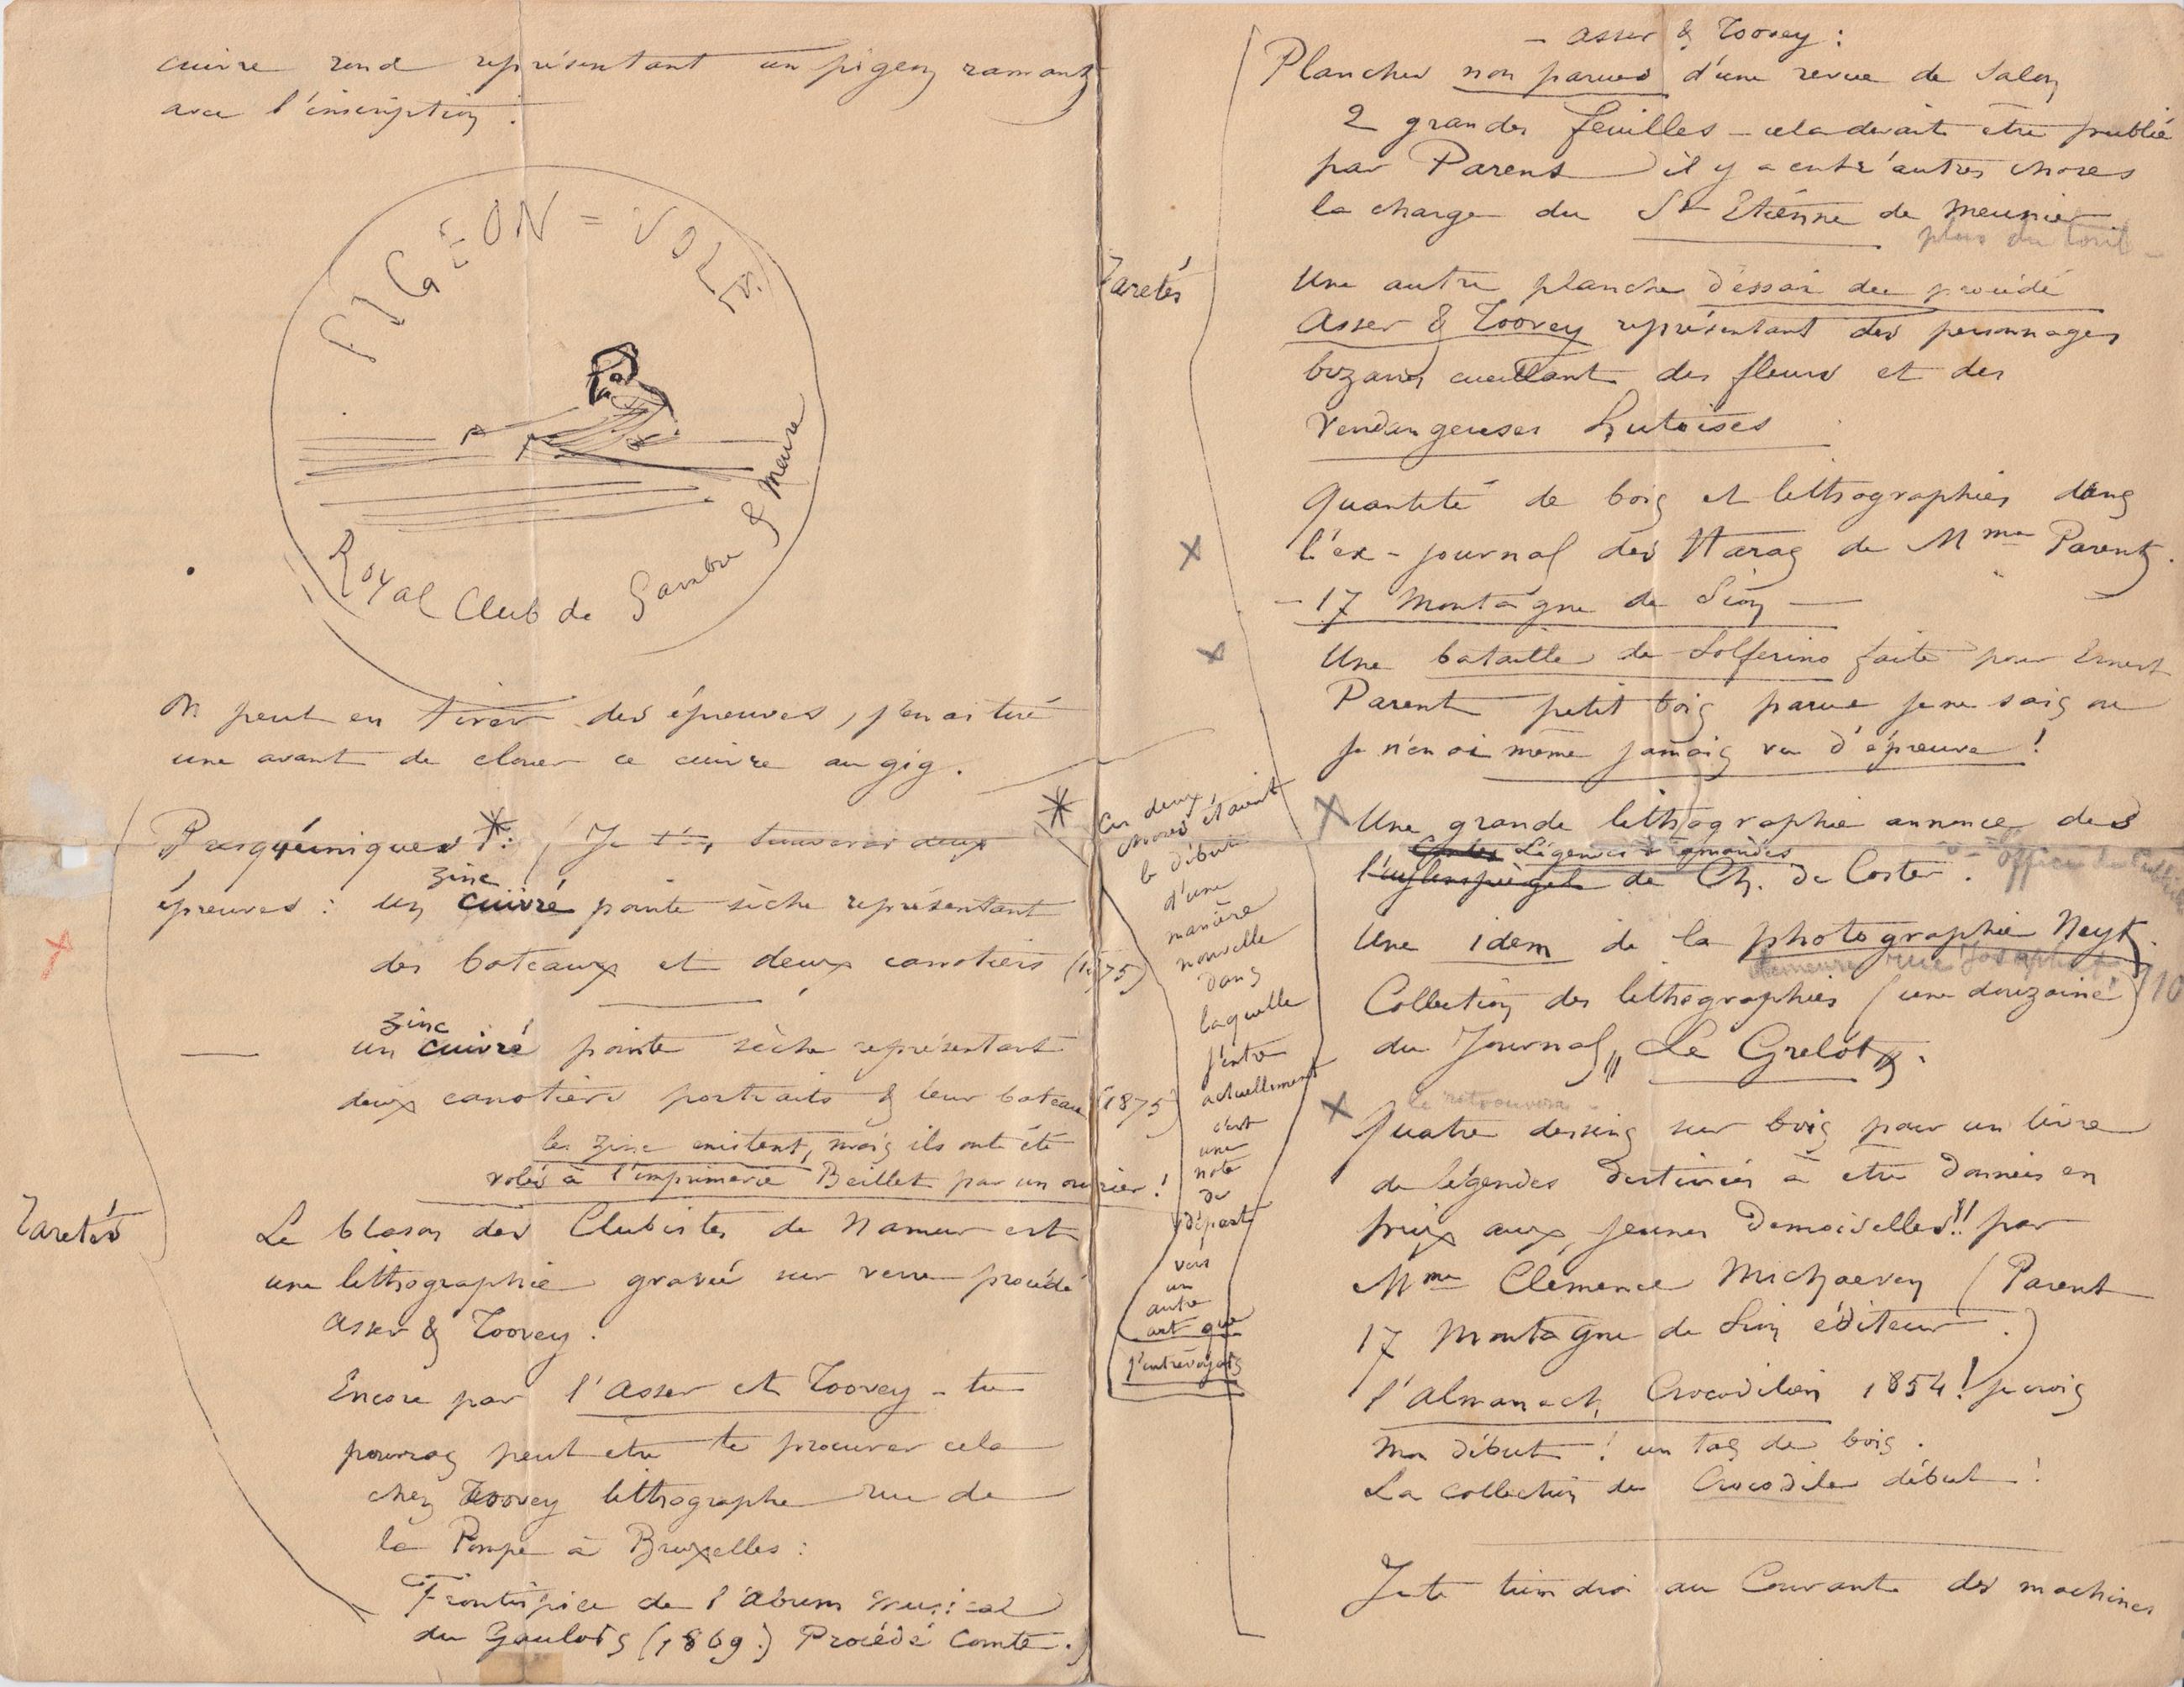 cuivre rond représentant un pigeon ramant
avec l'inscription :
PIGEON = VOLE.
Royal Club de Sambre & Meuse
On peut en tirer des épreuves, j'en ai tiré
une avant de clouer ce cuivre au gig.
épreuves : un zinc cuivré pointe sèche représentant
des bateaux et deux canotiers (1875)
un zinc cuivré pointe sèche représentant
deux canotiers portraits & leur bateau (1875)
les zinc existent, mais ils ont été
volés à l'imprimerie Beillet par un ouvrier !
Raretés
Le blason des Clubistes de Namur est
une lithographie gravée sur verre procédé
Asser & Toovey.
Encore par l'Asser et Toovey – tu
pourras peut etre te procurer cela
chez Toovey lithographe rue de
la Pompe à Bruxelles :
Frontispice de l'Album musical
du Gaulois (1869.) Procédé Comte.)
* Ces deux
choses étaient
le début
d'une
manière
nouvelle
dans
laquelle
j'entre
actuellement
c'est
une
note
de
départ
vers
un
autre
art que
j'entrevoyais
– Asser & Toovey :
Planches non parues d'une revue de Salon
2 grandes feuilles – cela devait etre publié
par Parent il y a entr'autres choses
la charge du St Etienne de Meunier
plus du tout –
Raretés
Une autre planche d'éssai du procédé
Asser & Toovey représentant des personnages
bizares cueillant des fleurs et des
Vendangeuses Hutoises
Quantité de bois et lithographies dans
l'ex-journal des Haras de Mme Parent.
– 17 Montagne de Sion –
Une bataille de Solferino faite pour Ernest
Parent petit bois parue je ne sais ou
je n'en ai même jamais vu d'épreuve !
Une grande lithographie annonce des
Contes Légendes
l'uylenspiegel de Ch. De Coster.
office de Publicité
Une idem de la photographie Neyt.
demeure rue Josaphat 110
Collection des lithographies (une douzaine)
du Journal „ Le Grelot „.
le retrouver –
Quatre dessins sur bois pour un livre
de légendes destinées à etre données en
prix aux jeunes Demoiselles!! par
Mme Clémence Michaeven (Parent
17 Montagne de Sion éditeur.)
l'Almanach Crocodilien 1854 ! je crois
mon début ! un tas de bois.
La collection du Crocodile début !
Je te tiendrai au Courant des machines